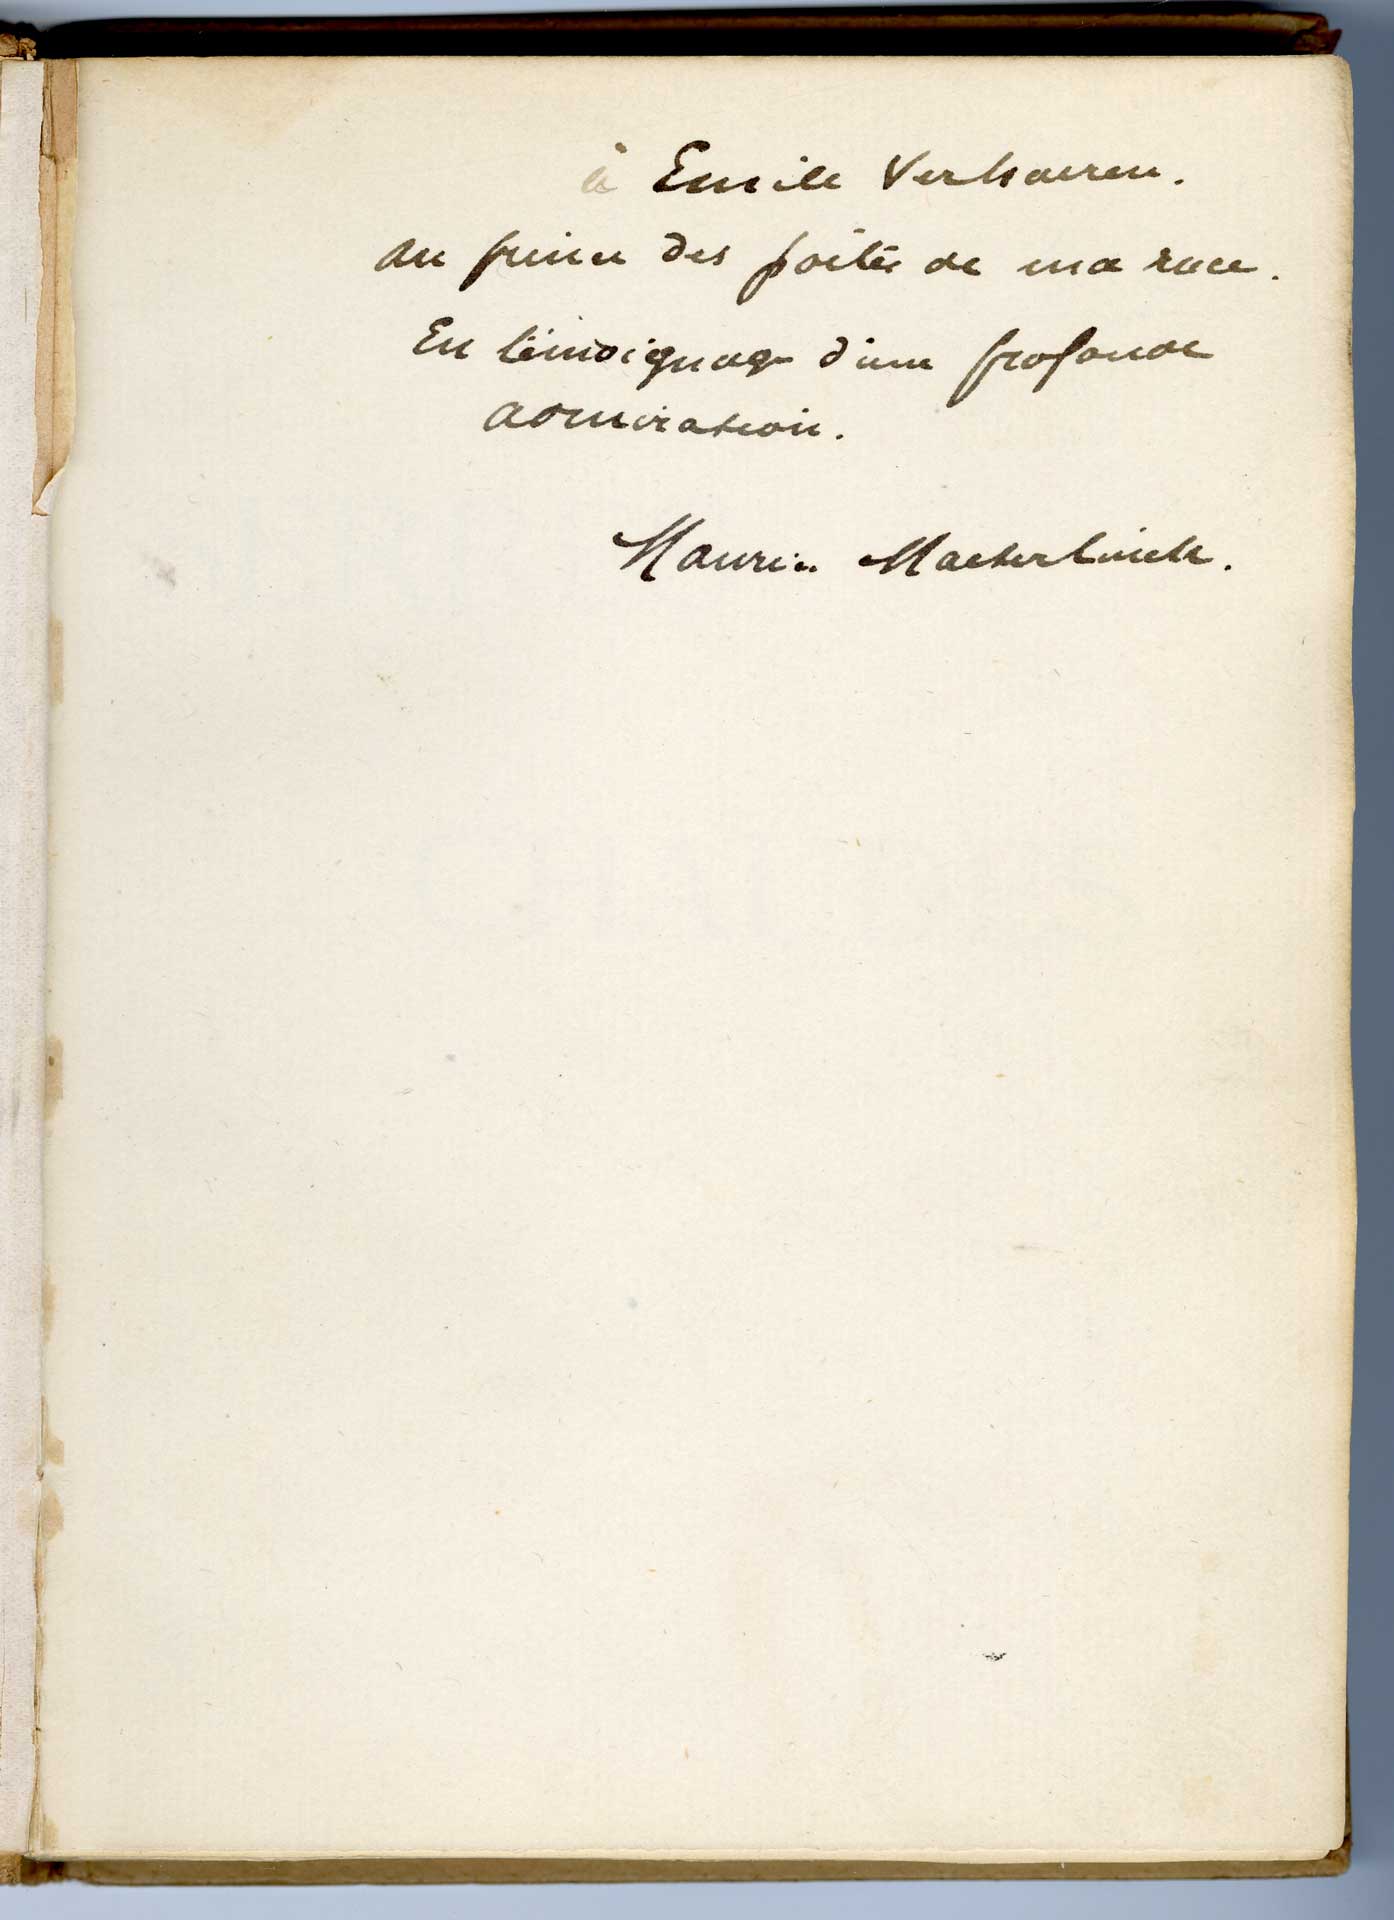 à Emile Verhaeren.
au prince des poètes de ma race.
En témoignage d'une profonde
admiration.
Maurice Maeterlinck.